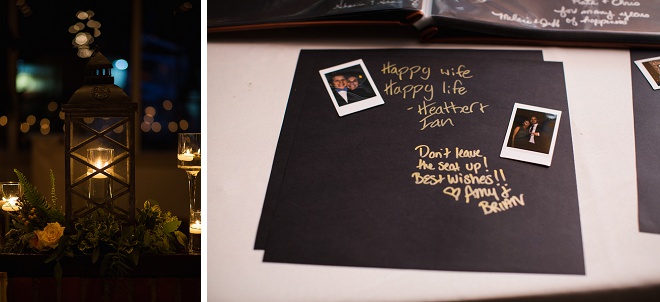 Kate + Chris
for many years
of happiness
Happy wife
Happy life
- Heather +
Ian
Don't leave
the seat up!
Best wishes!!
♡ Amy &
BRIAN